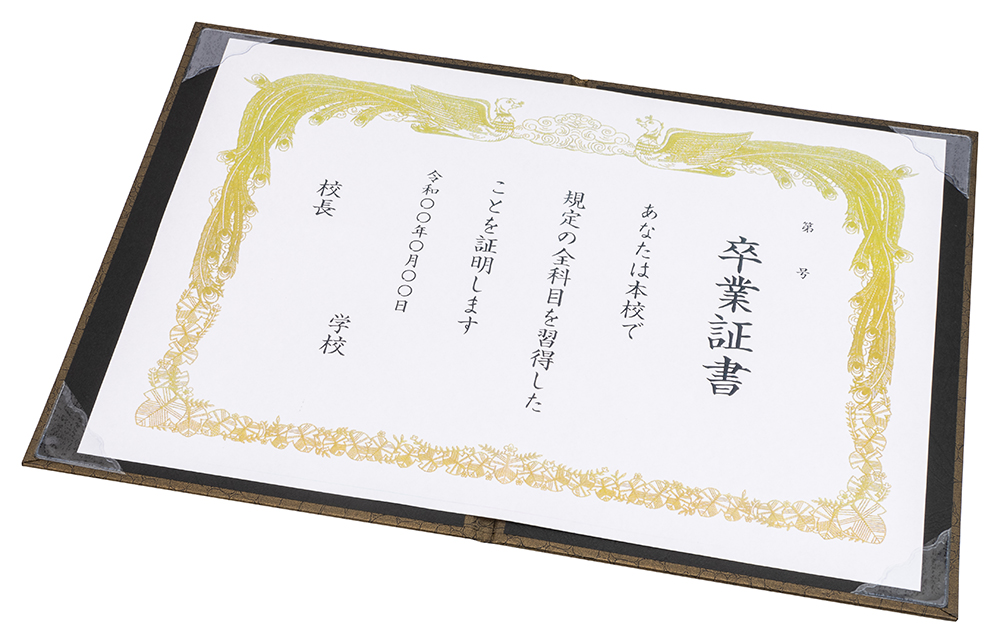 第　号
卒業証書
あなたは本校で
規定の全科目を習得した
ことを証明します
令和〇〇年〇月〇〇日
学校
校長